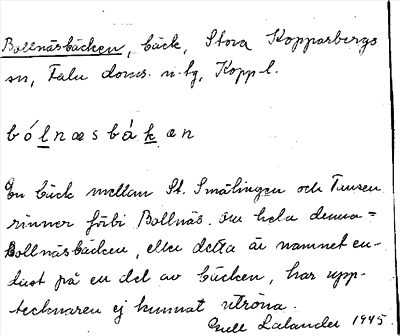 Bollnäsbäcken, bäck, Stora Kopparbergs
sn, Falu doms. n. tg, Kopp l.
bólnæsbákæn
En bäck mellan St. Smälingen och Tunsen
rinner förbi Bollnäs. Om hela denna =
Bollnäsbäcken, eller detta är namnet en-
dast på en del av bäcken, har upp-
tecknaren ej kunnat utröna.
Lalander 1945